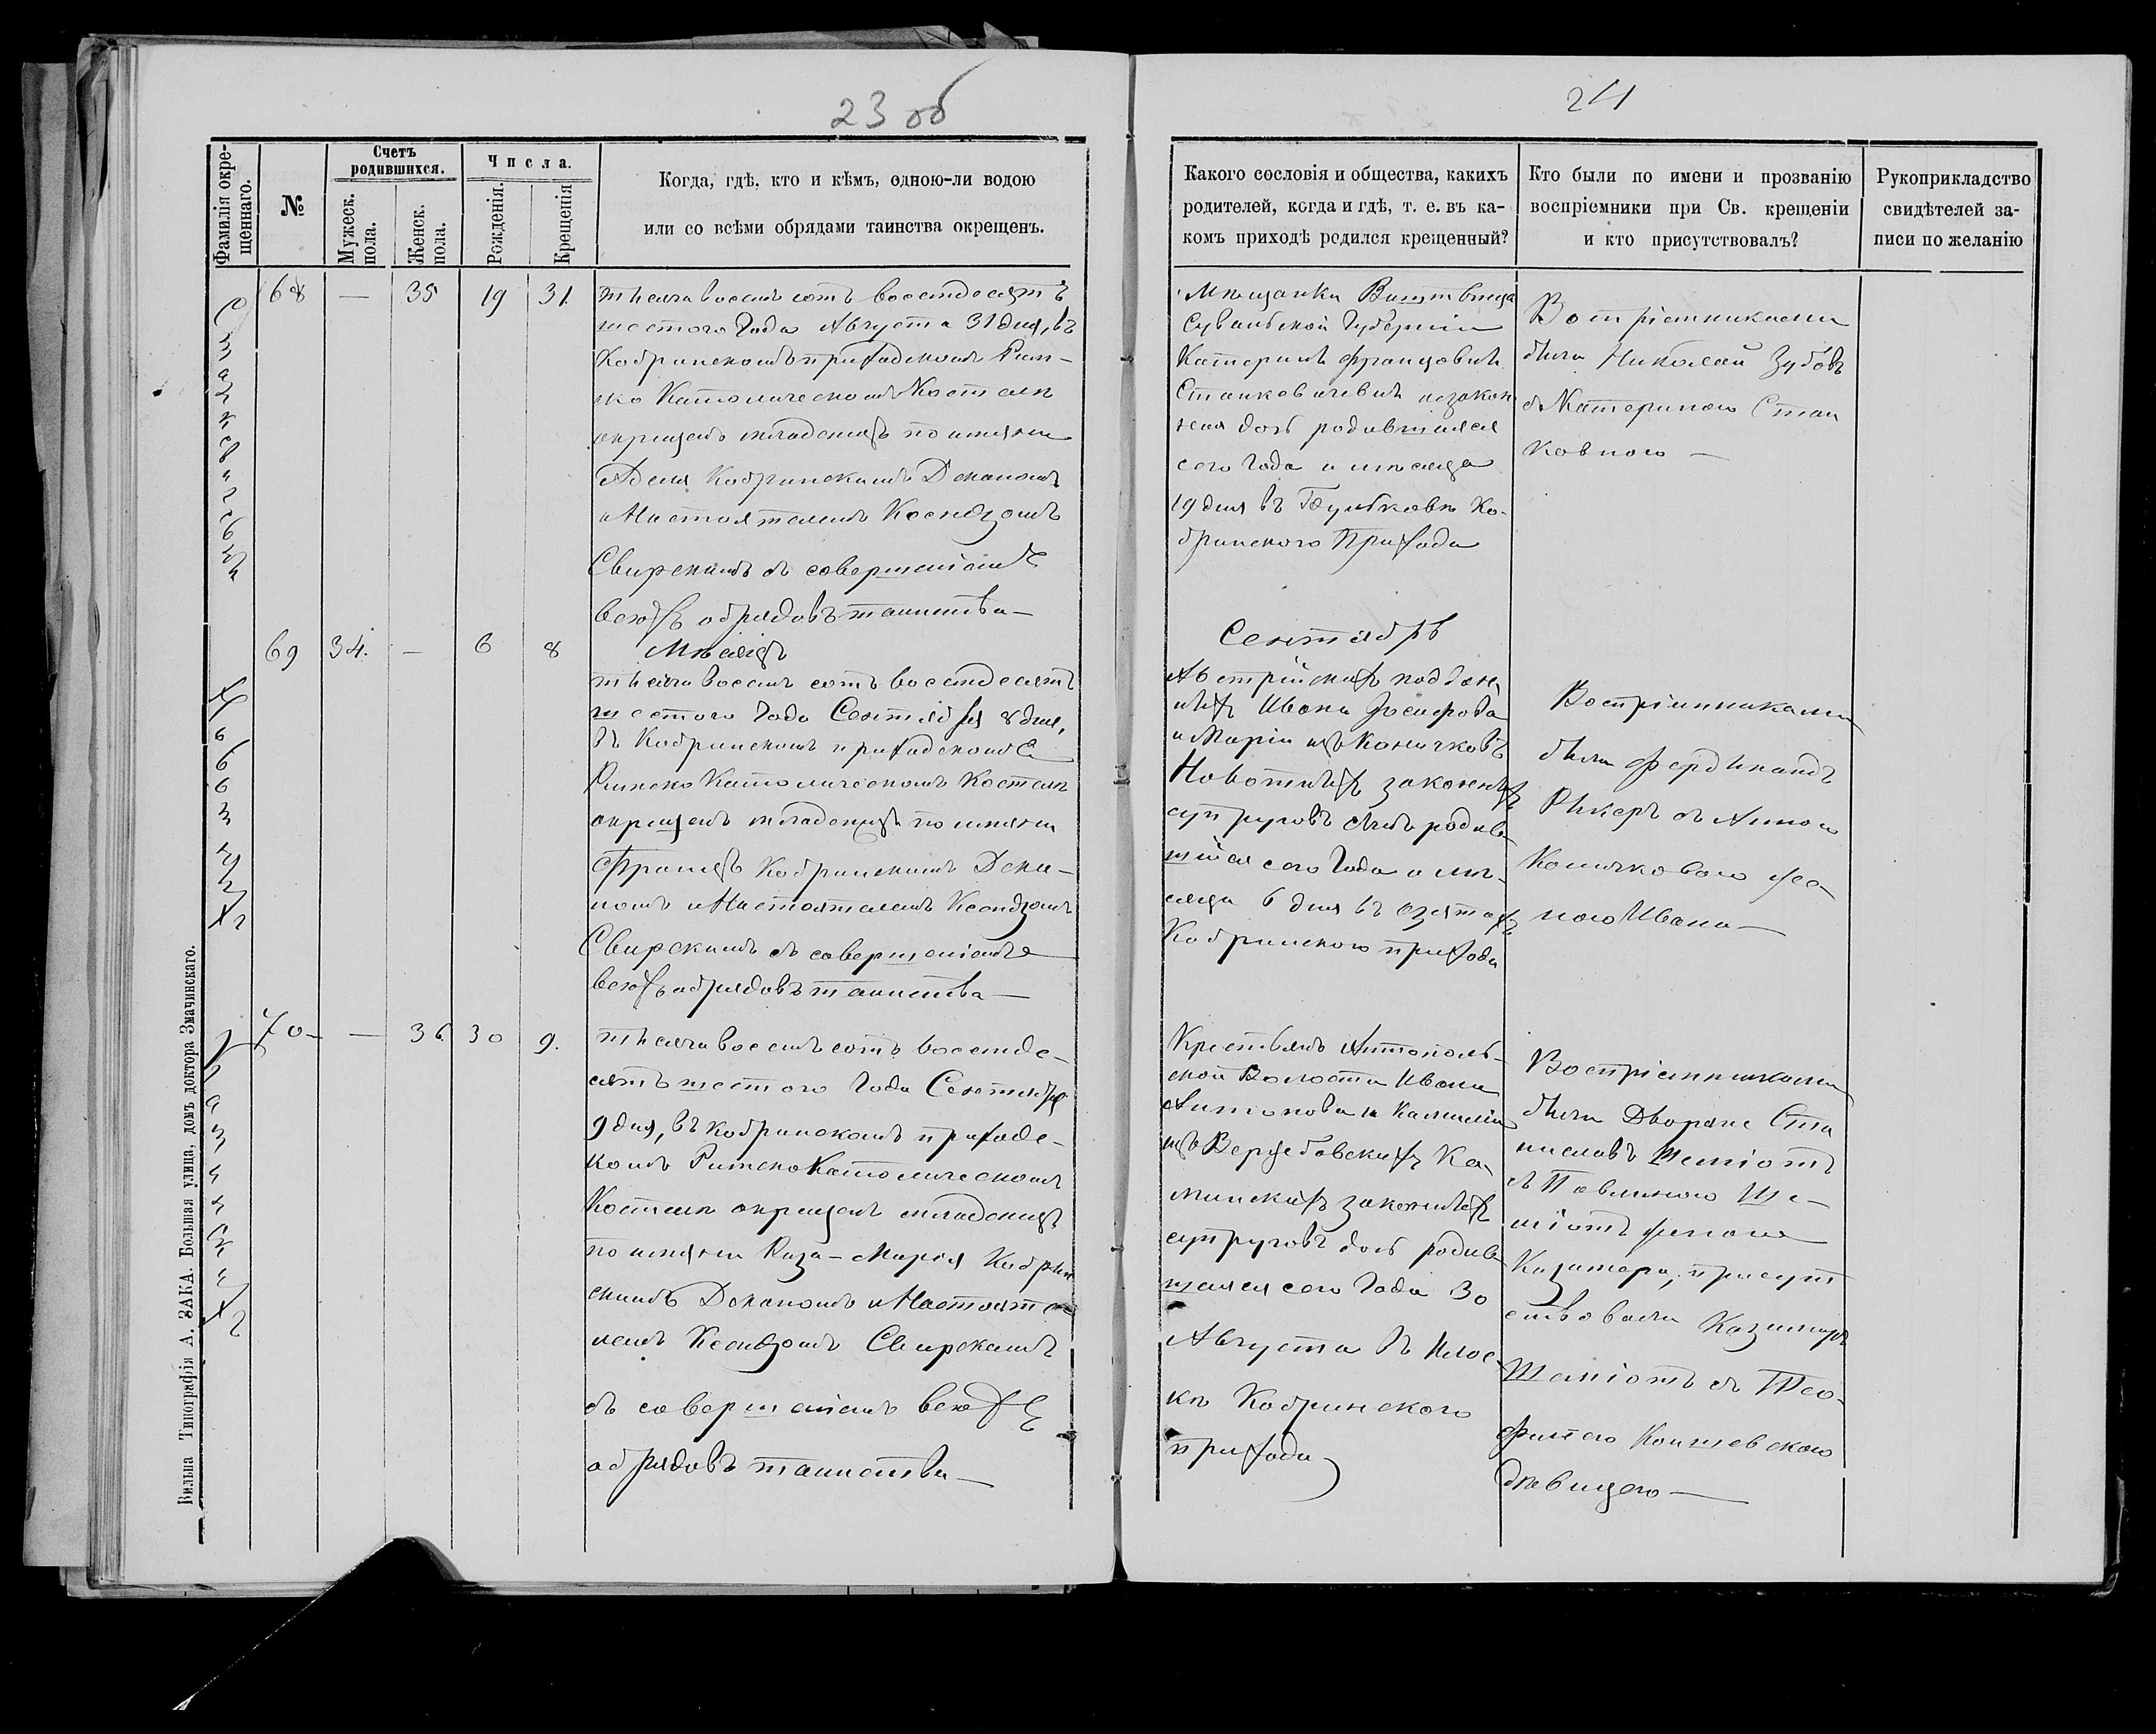 23 об
24
Фамилія окрещеннаго.
№
Счетъ родившихся.
Мужеск. пола.
Женск. пола.
Числа.
Рожденія.
Крещенія
Когда, гдѣ, кто и кѣмъ, одною-ли водою
или со всѣми обрядами таинства окрещенъ.
Какого сословія и общества, какихъ
родителей, когда и гдѣ, т. е. въ ка-
комъ приходѣ родился крещенный?
Кто были по имени и прозванію
воспріемники при Св. крещеніи
и кто присутствовалъ?
Рукоприкладство
свидѣтелей за-
писи по желанію
68 — 35 19 31.
тысяча восемь сотъ восемдесятъ
шестого Года Августа 31 дня, въ
Кобринскомъ приходскомъ Рим-
ско Католическомъ Костелѣ
окрещенъ младенецъ по имяни
Аделя Кобринскимъ Деканомъ
и Настоятелемъ Ксендзомъ
Свирскимъ съ совершеніемъ
всехъ обрядовъ таинства —
Мѣщанки
Сувалской Губерніи
Катерины Францовны
Станкевичевны незакон
ная дочь родившаяся
сего Года и месяца
19 дня въ Ко-
бринского Прихода
Воспріемниками
были Николай Зубовъ
съ Катериною Стан
ковною —
69 34. — 6 8
Мѣсяцъ
Сентябрь
тысяча восемь сотъ восемдесятъ
шестого Года Сентября 8 дня,
въ Кобринскомъ приходскомъ
Римско Католическомъ Костелѣ
окрещенъ младенецъ по имяни
Францъ Кобринскимъ Дека-
номъ и Настоятелемъ Ксендзомъ
Свирскимъ съ совершеніемъ
всехъ обрядовъ таинства —
Австрійскихъ поддан
ныхъ Ивана Іосифова
и Маріи изъ Коничковъ
Новотныхъ законныхъ
супруговъ сынъ родив
шійся сего Года и мѣ-
сяца 6 дня въ
Кобринского прихода
Воспріемниками
были Фердинандъ
Рикеръ съ Анною
Коничковою же-
ною Ивана —
70 — 36 30 9.
тысяча восемь сотъ восемде-
сятъ шестого Года Сентября
9 дня, въ Кобринскомъ приходс-
комъ Римско Католическомъ
Костелѣ окрещенъ младенецъ
по имяни Роза — Марія Кобрин
скимъ Деканомъ и Настояте
лемъ Ксендзомъ Свирскимъ
съ совершеніемъ всехъ
обрядовъ таинства —
Крестьянъ Антополь-
ской Волости Ивана
Антонова и Камиліи
изъ Вержбовскихъ Ка
минскихъ законныхъ
супруговъ дочь родив
шаяся сего Года 30
Августа въ Илос
кѣ Кобринского
прихода
Воспріемниками
были Дворяне Ста
ниславъ Шеміотъ
съ Павлиною Ше-
міотъ женою
Казимера, присут
ствовали Казимиръ
Шеміотъ съ Тео-
филею
дѣвицею —
Вильна Типографія А. ЗАКА. Большая улица, домъ доктора Змачинскаго.